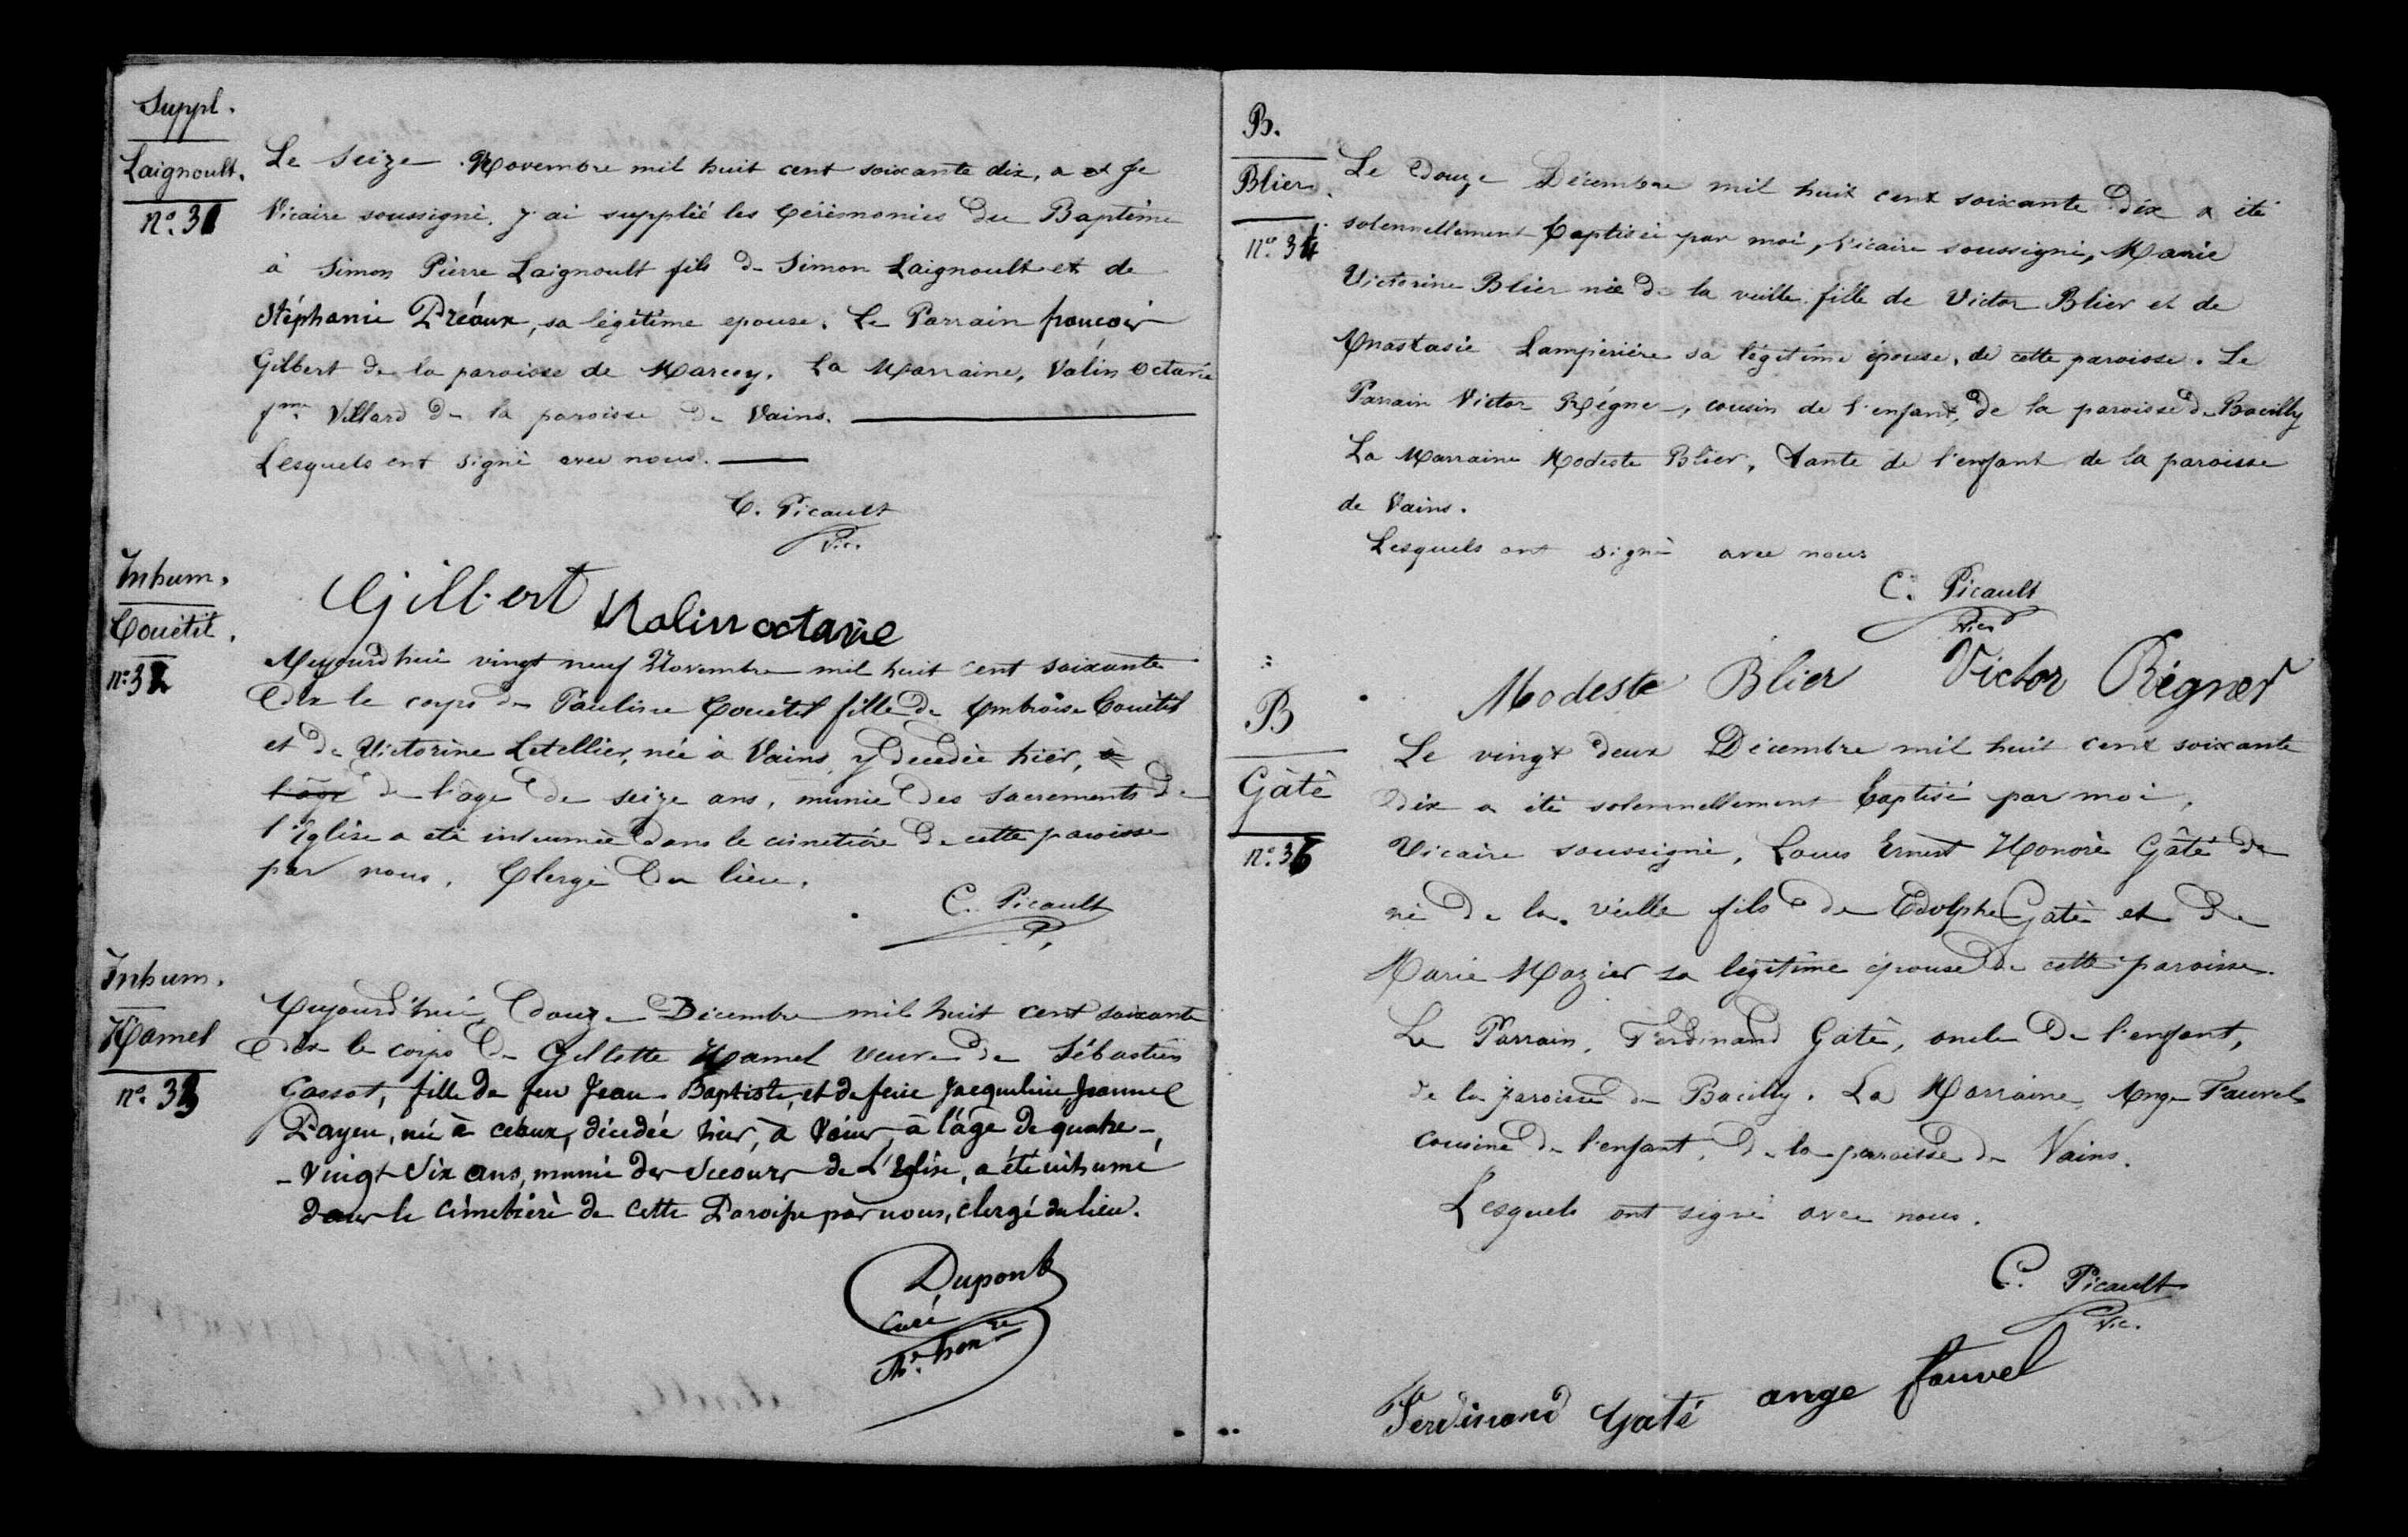 Suppl.
Laignoult.
N° 31
Le Seize Novembre mil huit cent soixante dix, a et Je
Vicaire soussigné, j'ai supplié les Cérémonies du Baptême
à Simon Pierre Laignoult fils de Simon Laignoult et de
Stéphanie Préaux, sa légitime epouse. Le Parrain françois
Gilbert de la paroisse de Marcey. La Marraine, Valin Octavie
fme Villard de la paroisse de Vains.
Lesquels ont signé avec nous.
C. Picault
Vic.
Gilbert Valin octavie
Inhum.
Couëtil.
n° 32
Aujourd'hui vingt neuf Novembre mil huit cent soixante
dix le corps de Pauline Couëtil fille de Ambroise Couëtil
et de Victorine Letellier, née à Vains, y décédée hier, à
l'âge de l'âge de seize ans, munie des Sacrements de
l'Eglise a été inhumée dans le cimetière de cette paroisse
par nous, Clergé du lieu.
C. Picault
Inhum.
Hamel
n° 33
Aujourd'hui douze Décembre mil huit cent soixante
dix le corps de Gillette Hamel veuve de Sébastien
Cossat, fille de feu Jean-Baptiste, et de feue Jacqueline Jeanne
Payen, née à céaux, décédée hier, à Vains, à l'âge de quatre-
-Vingt Six ans, munie des Secours de L'Eglise, a été inhumé
dans le cimetière de cette Paroisse par nous, clergé du lieu.
Dupont
Curé
Ch. honre
B.
Blier.
N° 34
Le douze Décembre mil huit cent soixante dix a été
solennellement baptisée par moi, Vicaire soussigné, Marie
Victorine Blier née de la veille fille de Victor Blier et de
Anastasie Lampérière sa légitime épouse, de cette paroisse. Le
Parrain Victor Régner, cousin de l'enfant, de la paroisse de Bacilly
La Marraine Modeste Blier, tante de l'enfant de la paroisse
de Vains.
Lesquels ont signé avec nous
C. Picault
Vic.
Modeste Blier Victor Régner
B
Gâté
n° 36
Le vingt deux Décembre mil huit cent soixante
dix a été solennellement baptisé par moi,
Vicaire soussigné, Louis Ernest Honoré Gâté de
né de la veille fils de Adolphe Gaté et de
Marie Mazier sa légitime épouse de cette paroisse.
Le Parrain, Ferdinand Gaté, oncle de l'enfant,
de la paroisse de Bacilly. La Marraine, Ange Fauvel
cousine de l'enfant, de la paroisse de Vains.
Lesquels ont signé avec nous.
C. Picault
Vic.
Ferdinand Gaté ange fauvel